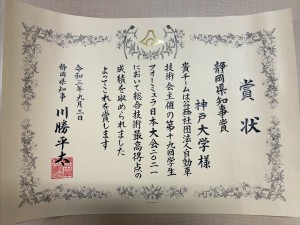 賞状
静岡県知事賞
神戸大学様
貴チームは公益社団法人自動車
技術会主催の第十九回学生
フォーミュラ日本大会二〇二一
において総合技術最高得点の
成績を収められました
よってこれを賞します
令和三年九月三日
静岡県知事 川勝平太